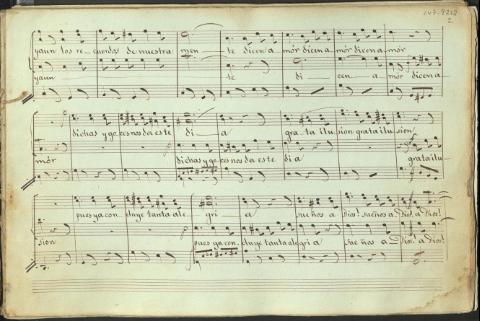 2
yaun los re- cuerdos de nuestra men- te dicen a mór dicen a mór dicen a mór
yaun te di cen a mór dicen a
dichas y go ces nos da este di- a grata ilu- sion grata ilu- sion
mór dichas y go ces nos da este di a grata ilu-
pues ya con- cluye tanta ale gri- a sueños a Dios! sueños a Dios! a Dios!
sion pues ya con- cluye tanta ale gri a sueños a Dios! a Dios!